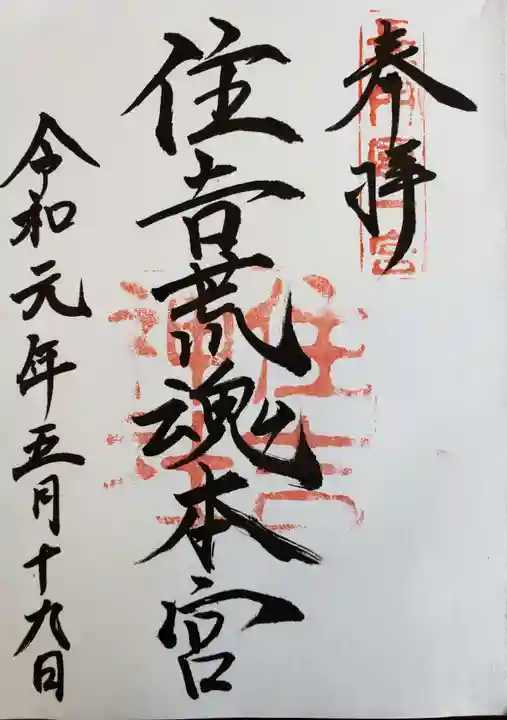 奉拝
住吉荒魂本宮
令和元年五月十九日
住吉
神社